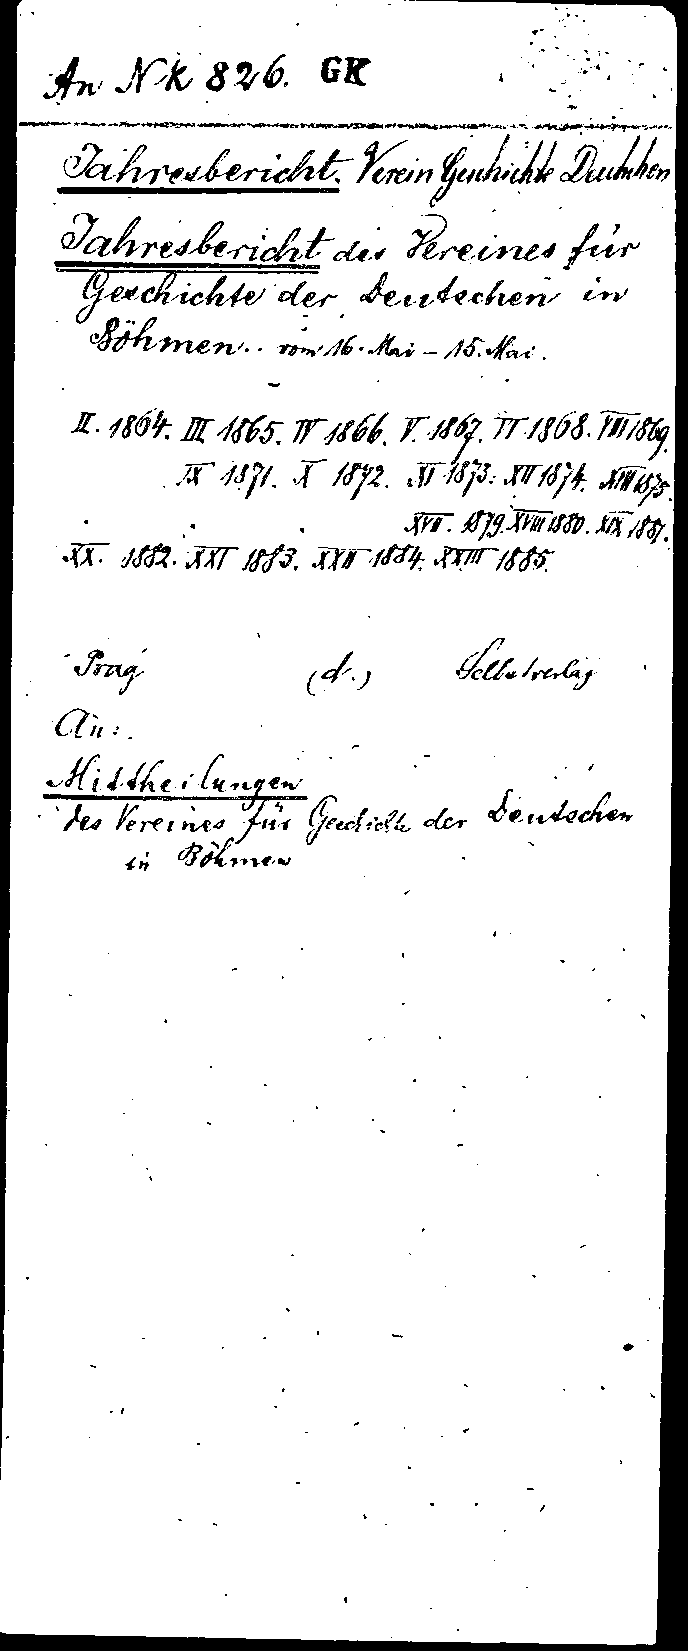 An NK 826. GK
Jahresbericht. Verein Geschichte Deutschen
Jahresbericht des Vereines für
Geschichte der Deutschen in
Böhmen.. vom 16. Mai – 15. Mai.
II. 1864. III 1865. IV 1866. V. 1867. VI 1868. VIII 1869.
IX 1871. X 1872. XI 1873. XII 1874. XIII 1875.
XVII. 1879. XVIII 1880. XIX 1881.
XX. 1882. XXI 1883. XXII 1884. XXIII 1885.
Prag (d.) Selbstverlag
An:.
Mittheilungen
des Vereines für Geschichte der Deutschen
in Böhmen